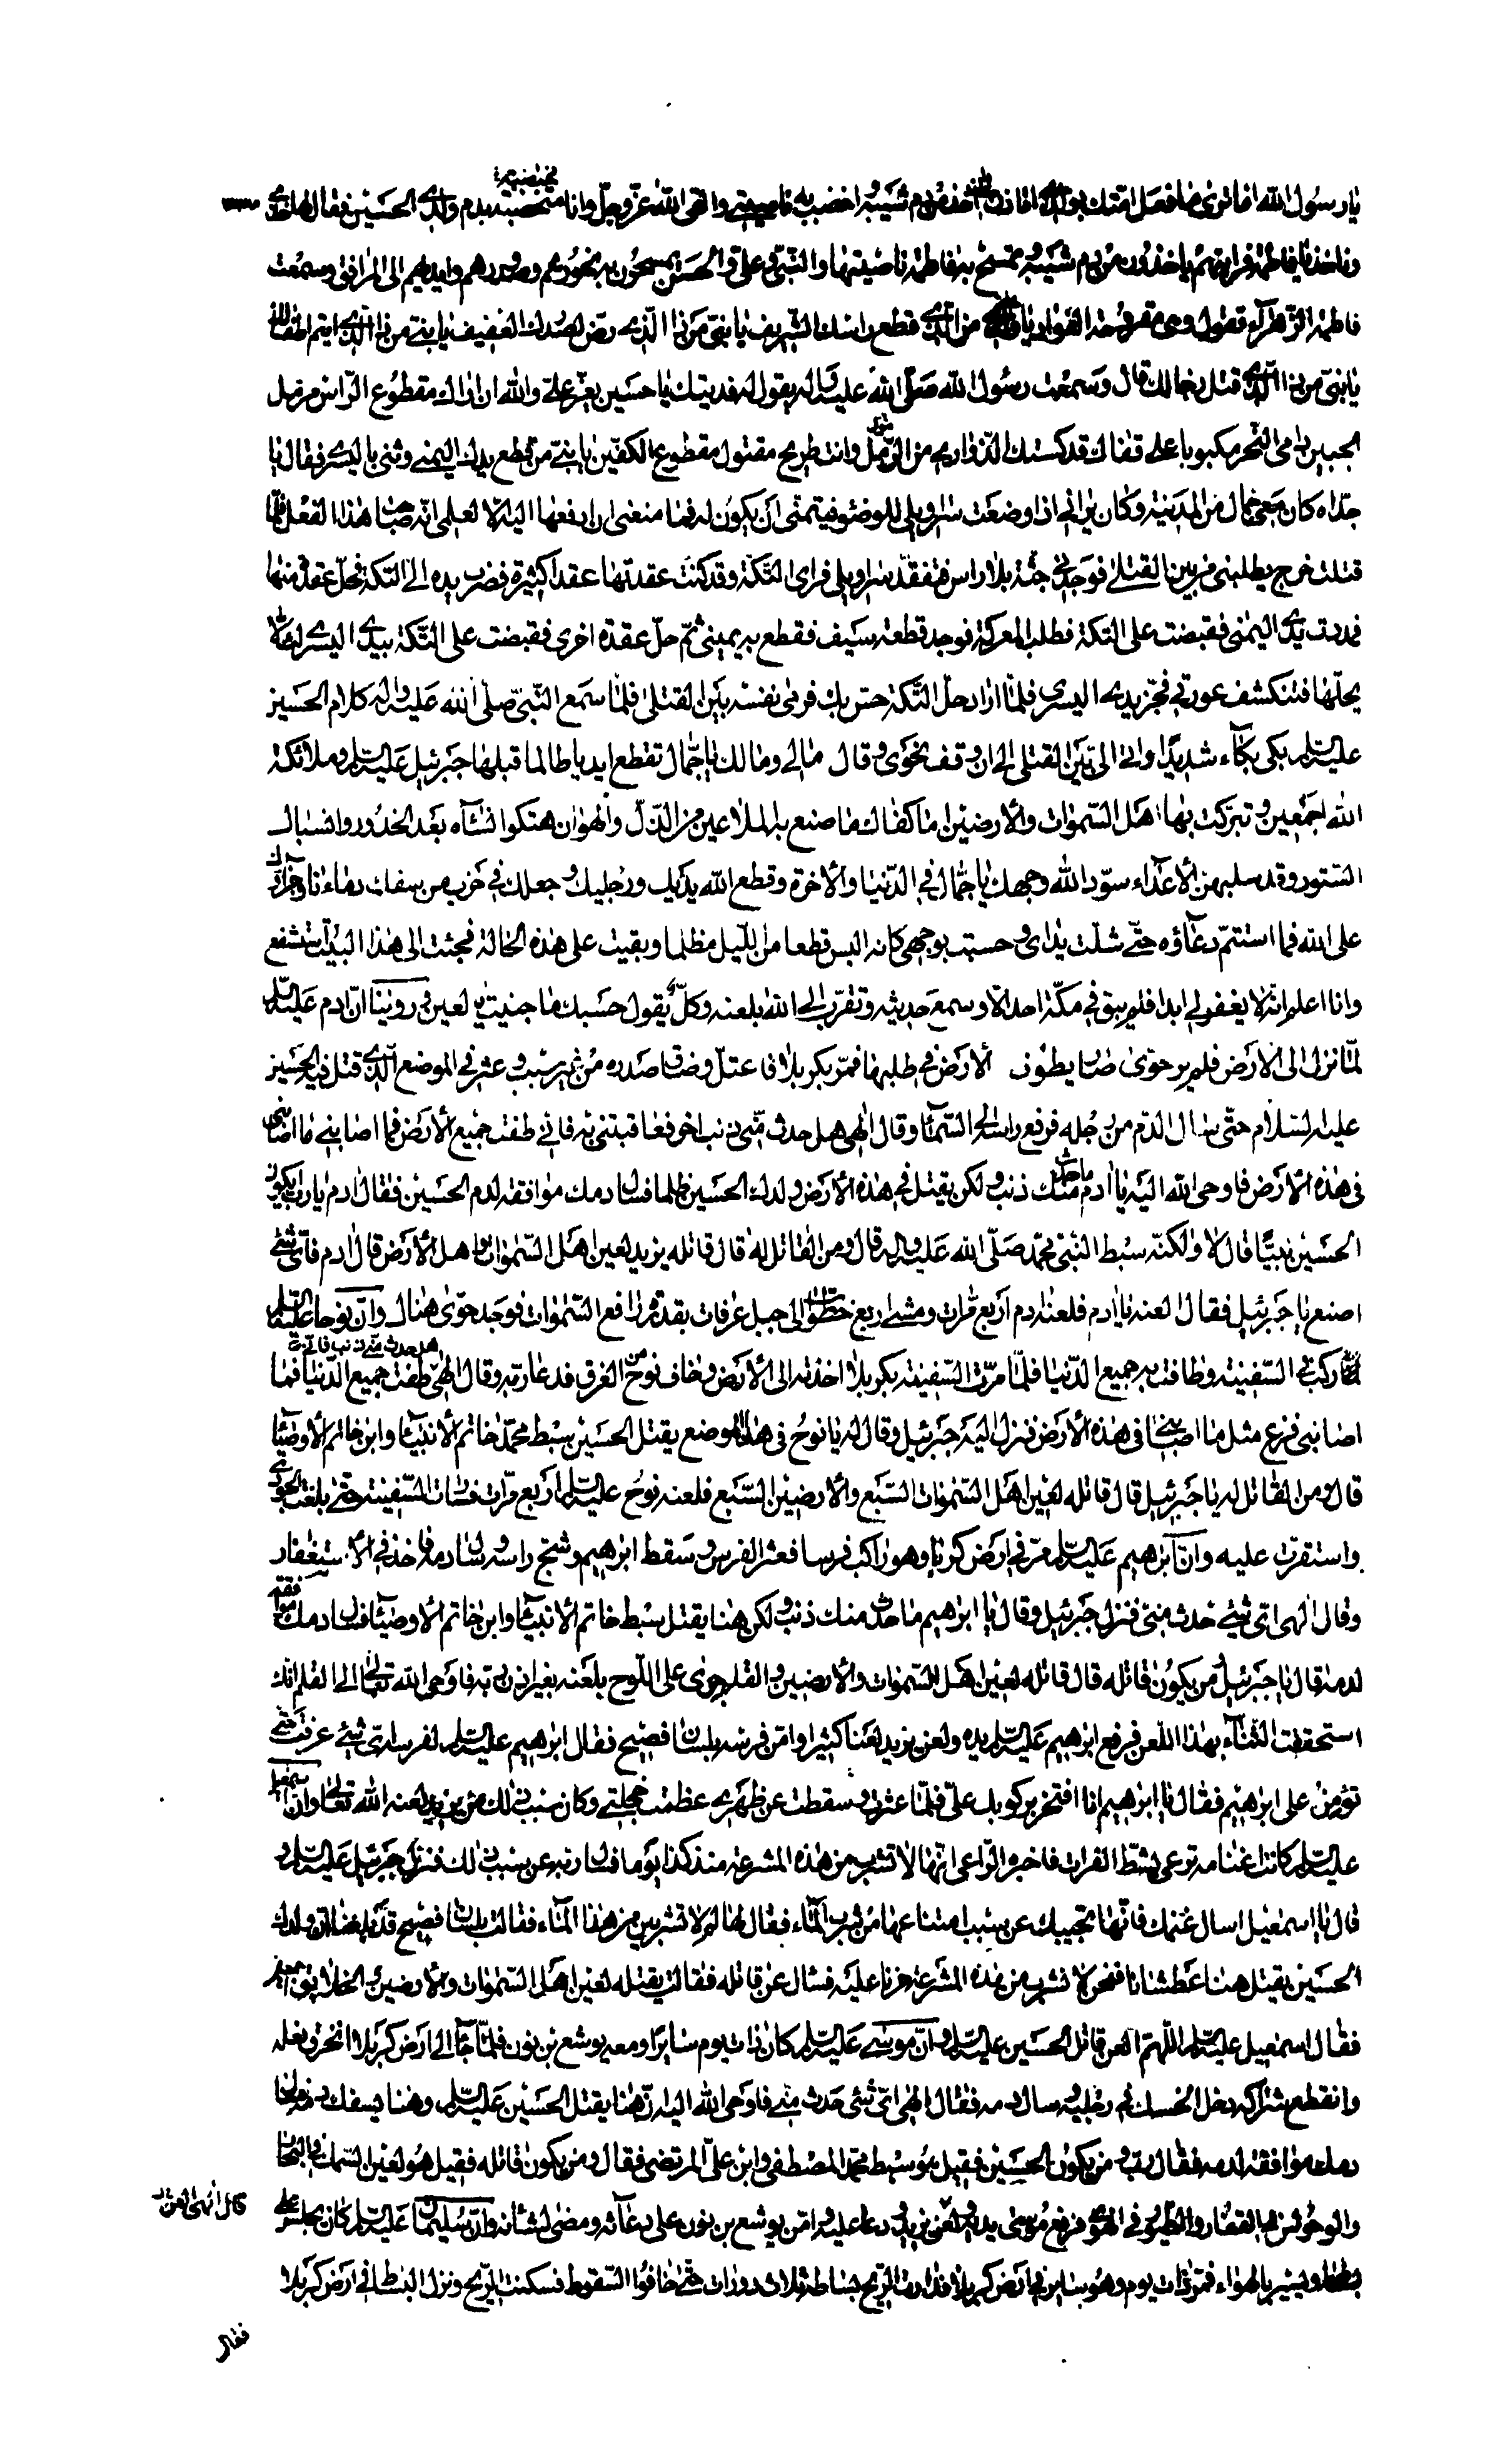 يا رسول الله اما ترى ما فعل امتك بولدي اتأذن لي ان اخذ من دم شيبه واخضب به ناصيتي والقى الله عز وجل وانا مختضبة بدم ولدي الحسين فقال لها خذي
وناخذ يا فاطمة فرايتهم ياخذون من دم شيبه وتمسح به فاطمة ناصيتها والنبي وعلي والحسن يمسحون به نحورهم وصدورهم وايديهم الى المرافق وسمعت
فاطمة الزهراء تقول وهي مقروحة الفؤاد يا من الذي قطع راسك الشريف يا بني من ذا الذي رض لصدرك العفيف يا بني من ذا الذي ايتم اطفالك
يا بني من ذا الذي قتل رجالك قال وسمعت رسول الله صلى الله عليه واله يقول له فديتك يا حسين يعز علي والله ان اراك مقطوع الراس مرمل
الجبين دامي النحر مكبوبا على قفاك قد كستك الذواري من الرمل وانت طريح مقتول مقطوع الكفين يا بني من قطع يدك اليمنى وثنى باليسرى فقال يا
جداه كان معي جمال من المدينة وكان يراني اذا وضعت سراويلي للوضوء فيتمنى ان يكون له فما منعني ان ادفعها اليه الا لعلمي انه صاحب هذا الفعل فلما
قتلت خرج يطلبني من بين القتلى فوجدني جثة بلا راس فتفقد سراويلي فراى التكة وقد كنت عقدتها عقدا كثيرة فضرب يده الى التكة فحل عقدة منها
فمددت يدي اليمنى فقبضت على التكة فطلب المعركة فوجد قطعة سيف فقطع به يميني ثم حل عقدة اخرى فقبضت على التكة بيدي اليسرى لئلا
يحلها فتنكشف عورتي فحز يدي اليسرى فلما اراد حل التكة حس بك فرمى نفسه بين القتلى فلما سمع النبي صلى الله عليه واله كلام الحسين
عليه السلم بكى بكاء شديدا واتى الي بين القتلى الى ان وقف نحوي وقال مالي ومالك يا جمال تقطع ايديا طالما قبلها جبرئيل عليه السلم وملائكة
الله اجمعين وتبركت بها اهل السموات والارضين اما كفاك ما صنع به الملاعين من الذل والهوان هتكوا نساءه بعد الخدور وانسبال
الستور وقد سلبهن الاعداء سود الله وجهك يا جمال في الدنيا والاخرة وقطع الله يديك ورجليك وجعلك في حزب من سفك دماءنا وجزاك
على الله فما استتم دعاؤه حتى شلت يداي وحسست بوجهي كانه البس قطعا من الليل مظلما وبقيت على هذه الحالة فجئت الى هذا البيت استشفع
وانا اعلم انه لا يغفر لي ابدا فلم يبق في مكة احد الا وسمع حديثه وتقرب الى الله بلعنه وكل يقول حسبك ما جنيت يا لعين روينا ان ادم عليه السلم
لما نزل الى الارض فلم ير حوى صار يطوف الارض في طلبها فمر بكربلا فاعتل وضاق صدره من غير سبب وعثر في الموضع الذي قتل فيه الحسين
عليه السلام حتى سال الدم من رجله فرفع راسه الى السماء وقال الهي هل حدث مني ذنب اخر فعاقبتني به فاني طفت جميع الارض فما اصابني ما اصابني
في هذه الارض فاوحى الله اليه يا ادم ما حدث منك ذنب ولكن يقتل في هذه الارض ولدك الحسين ظلما فسال دمك موافقة لدم الحسين فقال ادم يا رب ايكون
الحسين نبيا قال لا ولكنه سبط النبي محمد صلى الله عليه واله قال ومن القاتل له قال قاتله يزيد لعين اهل السموات واهل الارض قال ادم فاي شئ
اصنع يا جبرئيل فقال العنه يا ادم فلعنه ادم اربع مرات ومشى اربع خطوات الى جبل عرفات بقدرة رافع السموات فوجد حوى هناك وان نوحا عليه السلم
لما ركب في السفينة وطافت به جميع الدنيا فلما مرت السفينة بكربلا اخذته الى الارض وخاف نوح من الغرق فدعا ربه وقال الهي هل حدث مني ذنب فاني طفت جميع الدنيا فما
اصابني فزع مثل ما اصابني في هذه الارض فنزل اليه جبرئيل وقال له يا نوح في هذا الموضع يقتل الحسين سبط محمد خاتم الانبياء وابن خاتم الاوصياء
قال ومن القاتل له يا جبرئيل قال قاتله لعين اهل السموات السبع والارضين السبع فلعنه نوح عليه السلم اربع مرات فسارت السفينة حتى بلغت الجودي
واستقرت عليه وان ابرهيم عليه السلم مر في ارض كربلا وهو راكب فرسا فعثر الفرس وسقط ابرهيم وشج راسه وسال دمه فاخذ في الاستغفار
وقال الهي اي شئ حدث مني فنزل جبرئيل وقال يا ابرهيم ما حدث منك ذنب ولكن هنا يقتل سبط خاتم الانبياء وابن خاتم الاوصياء فسال دمك موافقة
لدمه قال يا جبرئيل من يكون قاتله قال قاتله لعين اهل السموات والارضين والقلم جرى على اللوح بلعنه بغير اذن ربه فاوحى الله تعالى الى القلم انك
استحققت الثناء بهذا اللعن فرفع ابرهيم عليه السلم يده ولعن يزيد لعنا كثيرا وامن فرسه بلسان فصيح فقال ابرهيم عليه السلم لفرسه اي شئ عرفت حتى
تؤمن على ابرهيم فقال يا ابرهيم انا افتخر بركوبك علي فلما عثرت وسقطت عن ظهري عظمت خجلتي وكان سبب ذلك من يزيد لعنه الله تعالى وان اسمعيل
عليه السلم كانت اغنامه ترعى بشط الفرات فاخبره الراعي انها لا تشرب من هذه المشرعة منذ كذا يوما فسال ربه عن سبب ذلك فنزل جبرئيل عليه السلم و
قال يا اسمعيل اسال غنمك فانها تجيبك عن سبب امتناعها من شرب الماء فقال لها لم لا تشربين من هذا الماء فقالت بلسان فصيح قد بلغنا ان ولدك
الحسين يقتل هنا عطشانا فنحن لا نشرب من هذه المشرعة حزنا عليه فسال عن قاتله فقالت يقتله لعين اهل السموات والارضين والخلايق اجمعين
فقال اسمعيل عليه السلم اللهم العن قاتل الحسين عليه السلم وان موسى عليه السلم كان ذات يوم سايرا ومعه يوشع بن نون فلما جاء الى ارض كربلا انخرق نعله
وانقطع شراكه ودخل الحسك في رجليه وسال دمه فقال الهي اي شئ حدث مني فاوحى الله اليه ان هنا يقتل الحسين عليه السلم وهنا يسفك دمه فسال
دمك موافقة لدمه فقال رب ومن يكون الحسين فقيل هو سبط محمد المصطفى وابن علي المرتضى فقال ومن يكون قاتله فقيل هو لعين السمك في البحار
والوحوش في القفار والطير في الهواء فرفع موسى يديه ولعن يزيد ودعا عليه وامن يوشع بن نون على دعائه ومضى لشانه وان سليمان عليه السلم كان يجلس على
بساطه ويسير بالهواء فمر ذات يوم وهو ساير في ارض كربلا فادارت الريح بساطه ثلاث دورات حتى خافوا السقوط فسكنت الريح ونزل البساط في ارض كربلا
فقال